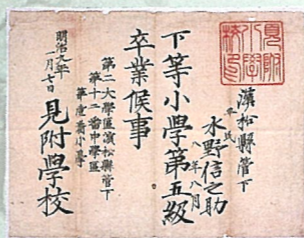 濱松縣管下
平民
水野信之助
八年八月
下等小學第五級
卒業候事
第二大學區濱松縣管下
第十二番中學區
見附學校
明治九年
一月七日